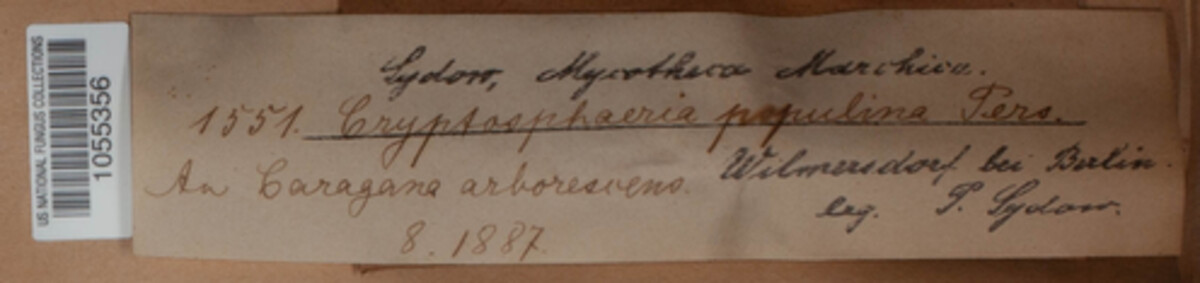 US NATIONAL FUNGUS COLLECTIONS
1055356
Sydow, Mycotheca Marchica.
1551. Cryptosphaeria populina Pers.
An Caragana arborescens. Wilmersdorf bei Berlin.
8. 1887. leg. P. Sydow.